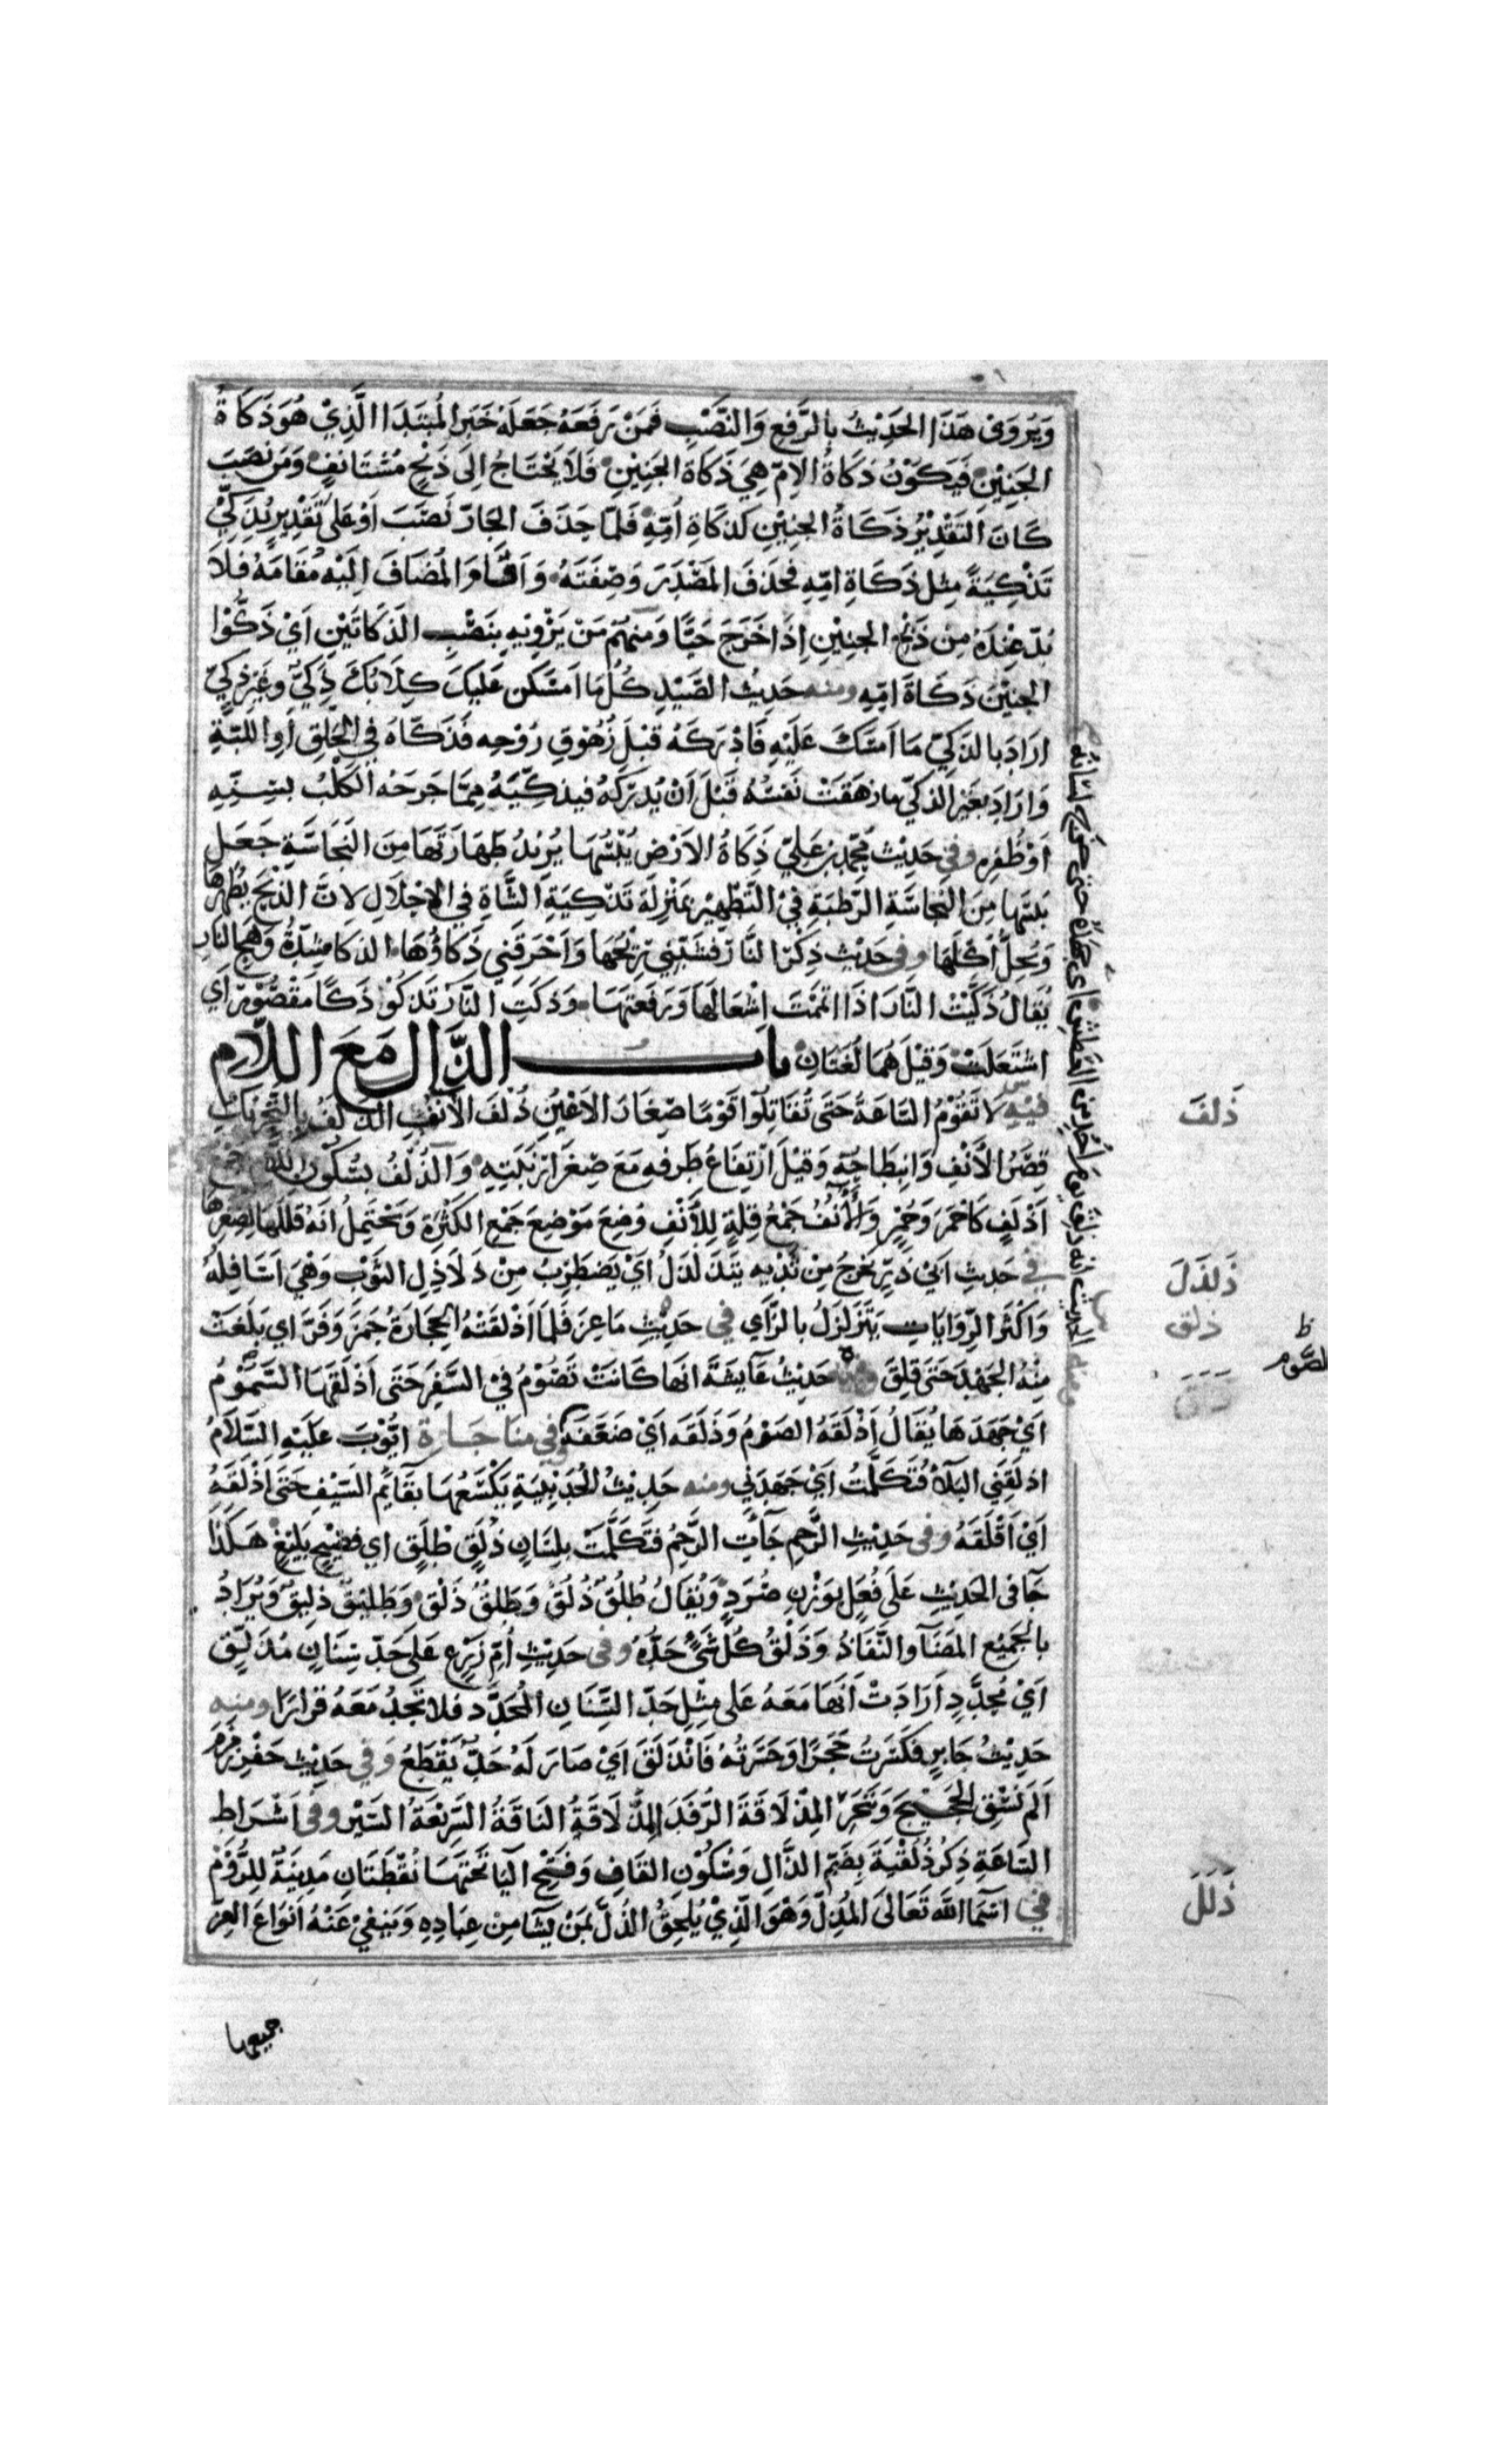 وَيُرْوَى هَذَا الحَدِيْثُ بِالرَّفعِ وَالنَّصْبِ فَمَنْ رَفَعَهُ جَعَلَهُ خَبَرَ المُبْتَدَا الَّذِيْ هُوَ ذَكَاةُ
الجَنِيْنِ فَيَكُوْنُ ذَكَاةُ الاُمِّ هِيَ ذَكَاةَ الجَنِيْنِ فَلَا يَحْتَاجُ اِلَى ذَبْحٍ مُسْتَانَفٍ وَمَن نَصَبَ
كَانَ التَقْدِيْرُ ذَكَاةُ الجَنِيْنِ كَذَكَاةِ اُمِّهِ فَلَمَّا حَذَفَ الجَارَّ نَصَبَ اَوْ عَلَى تَقْدِيْرِ يُذَكِّيْ
تَذْكِيَةً مِثل ذَكَاةِ امِّهِ فَحَذَفَ المَصْدَرَ وَصِفَتَهُ وَاَقَامَ المُضَافَ اِلَيْهِ مُقَامَهُ فَلَا
بُدَّ عِنْدَهُ مِن ذَبْحِ الجَنِيْنِ اِذَا خَرَجَ حَيًّا وَمِنهُمْ مَنْ يَرْوِيْهِ بِنَصْبِ الَذَكَاتَيْنِ اَيْ ذَكُّوْا
الجَنِيْنَ ذَكَاةَ امِّهِ ومنه حَدِيْثُ الصَّيْدِ كُلْ مَا اَمْسَكَن عَليكَ كِلَابُكَ ذَكِيٌّ وغَيْر ذكِيٍّ
ارَادَ بِالذَكِيِّ مَا اَمسَكَ عَلَيْهِ فَادْرَكَهُ قَبْلَ زُهُوْقِ رُوْحِه فَذَكَّاهُ فِي الحَلقِ اَوِ اللبَّةِ
وَارَادَ بِغَيْرِ الَذكيِّ ما زهَقَتْ نَفسُهُ قَبْلَ اَنْ يُدْرِكَهُ فيذكِّيَهُ مِمَّا جَرَحَه الكَلْبُ بسِنِّهِ
اَوْ ظُفْرِه وفي حَدِيْث مُحَمَّدِ بنِ عَلِيّ ذَكَاةُ الاَرْضِ يُبْسُهَا يُرِيْدُ طَهَارَتَهَا مِنَ النَجَاسَةِ جَعَل
يُبْسَهَا مِنَ النَجَاسَةِ الرَّطْبَةِ فِيْ التَّطْهِيْرِ بمَنْزِلَةِ تَذْكِيَةِ الشَّاةِ فِي الاِحْلَالِ لِانَّ الذَبْحَ يُطَهِّرُهَا
وَيُحِلُّ اُكْلَهَا وفي حَدِيْث ذِكْرِ النَّارِ قَشَبَنِي رِيْحُهَا وَاَحْرَقَني ذَكَاؤُهَا الذكا شِدَّةُ وَهَجِ النارِ
يُقَالُ ذَكَّيْتُ النَّارَ اذَا اَتْمَمْتَ اِشْعَالَهَا وَرَفَعتَهَا وَذكَتِ النَّارُ تَذكُوْ ذَكًا مَقْصُوْرٌ اَي
اشتَعَلَتْ وَقِيْلَ هُمَا لُغَتَانِ باب الذَّالِ مَعَ اللَّامِ
فيْهِ لَا تَقُوْمُ السَاعَةُ حَتَى تُقَاتِلُوا قَوْمًا صِغَارَ الاَعْيُنِ ذُلْفَ الاَنُفِ الذلَفُ بالتَّحْرِيكِ
قِصَرُ الاَنْفِ وَانبِطَاحُهُ وَقِيْلَ ارْتِفَاعُ طَرَفِهِ مَعَ صِغَرِ اَرْنَبَتِهِ وَالذُلْفُ بسُكُونِ اللام جَمْعُ
اَذْلَفَ كَاحْمَرَ وَحُمْرٍ وَالأَنُفُ جَمْعُ قِلةٍ لِلأَنْفِ وُضِعَ مَوْضِعَ جَمْعِ الكَثْرَةِ وَيَحْتَمِلُ اَنَهُ قَلَلَهَا لِصِغَرِهَا
في حَدِيثِ اَبي ذَرٍّ يَخرُجُ مِنْ ثَدْيِه يَتَذَلذَلُ اَيْ يَضْطَرِبُ مِنْ ذَلَاذِلِ الثَوْبِ وَهْيَ اَسَافِلُهُ
وَاَكْثَر الرِّوَايَاتِ يَتَزَلزَلُ بِالزَّايِ في حَدِيْثِ مَاعِزٍ فَلَمَّا اَذْلَقَتْهُ الحِجَارَةُ جَمَزَ وَفَرَّ اي بَلَغَتْ
مِنْهُ الجَهْدَ حَتَى قَلِقَ حَدِيْثُ عَآيشَةَ انَهَا كَانَتْ تَصُوْمُ فِيْ السَّفَرِ حَتَى اَذْلَقَهَا السَّمُوْمُ
اَيْ جَهَدَهَا يُقَالُ اَذْلَقَهُ الصَوْمُ وَذَلَقَه اَيْ ضَعَّفَه وفي منَاجَاةِ ايُّوْبَ عَلَيْهِ السَّلَامُ
اذلَقَنِي البَلَآءُ فَتَكَلَّمْتُ اَيْ جَهَدَنِي ومنه حَدِيْثُ الحُدَيْبِيَةِ يَكْسَعُهَا بِقَايِمِ السَيْفِ حَتَى اَذْلَقَهُ
اَيْ اَقْلَقَهُ وفي حَدِيْثِ الرَّحِمِ جَآتِ الرَّحِمُ فَتَكَلَّمَتْ بِلِسَانٍ ذُلَقٍ طُلَقٍ اي فصِيْحٍ بَلِيْغٍ هَكَذَا
جَآ فى الحَدِيْثِ عَلَى فُعَلٍ بوَزْنِ صُرَدٍ وَيُقَالُ طُلُقٌ ذُلُقٌ وَطَلْقٌ ذَلْقٌ وَطَلِيْقٌ ذَلِيْقٌ وَيُرَادُ
بالجَمِيْعِ المَضَآ وَالنَّفَاذُ وَذَلْقُ كُلِّ شَيْءٍ حَدُّهُ وفي حَدِيْثِ اُمِّ زَرْعٍ عَلَى حَدِّ سِنَانٍ مُذَلَّقٍ
اَيْ مُحَدَّدٍ اَرَادَتْ اَنَّهَا مَعَهُ عَلى مِثْلِ حَدِّ السِّنَانِ المُحَدَّدِ فَلا تَجِدُ مَعَهُ قرارًا ومنه
حَدِيْثُ جَابِرٍ فَكَسَرْتُ حَجَرًا وَحَسَرْتُهُ فَانْذَلَقَ اَيْ صَارَ لَهُ حَدٌّ يَقْطَعُ وَفي حَدِيْث حَفْرِ زَمْزَمَ
اَلَمْ نَسْقِ الحَجِيْجَ وَنَنْحَرِ المِذْلَاقَةَ الرُّفَدَ المِذْلَاقَةُ النَاقَةُ السَّرِيْعَةُ السَيْر وفي اَشْرَاطِ
السَاعَةِ ذِكْرُ ذُلُقْيَةَ بِضَمِّ الذَّالِ وَسُكُوْنِ القَافِ وَفَتْحِ اليَا تَحْتَهَا نُقْطَتَانِ مَدِيْنَةٌ لِلرُّوْمِ
في اسْمَآ اللّٰهِ تَعَالَى المُذِلُّ وَهْوَ الَّذِيْ يُلحِقُ الذُّلَّ بِمَنْ يَشَآ مِن عِبَادِهِ وَيَنْفِيْ عَنْهُ اَنْوَاعَ العِزِّ
جميعها
ذَلفَ
ذَلذَلَ
ذلق
ظ
الصَّوم
ذَلَلَ
الحديث انه ذلق يوم اُحُدٍ من العَطَشِ اَي جَهَدَهُ حتى خرج لسَانُهُ